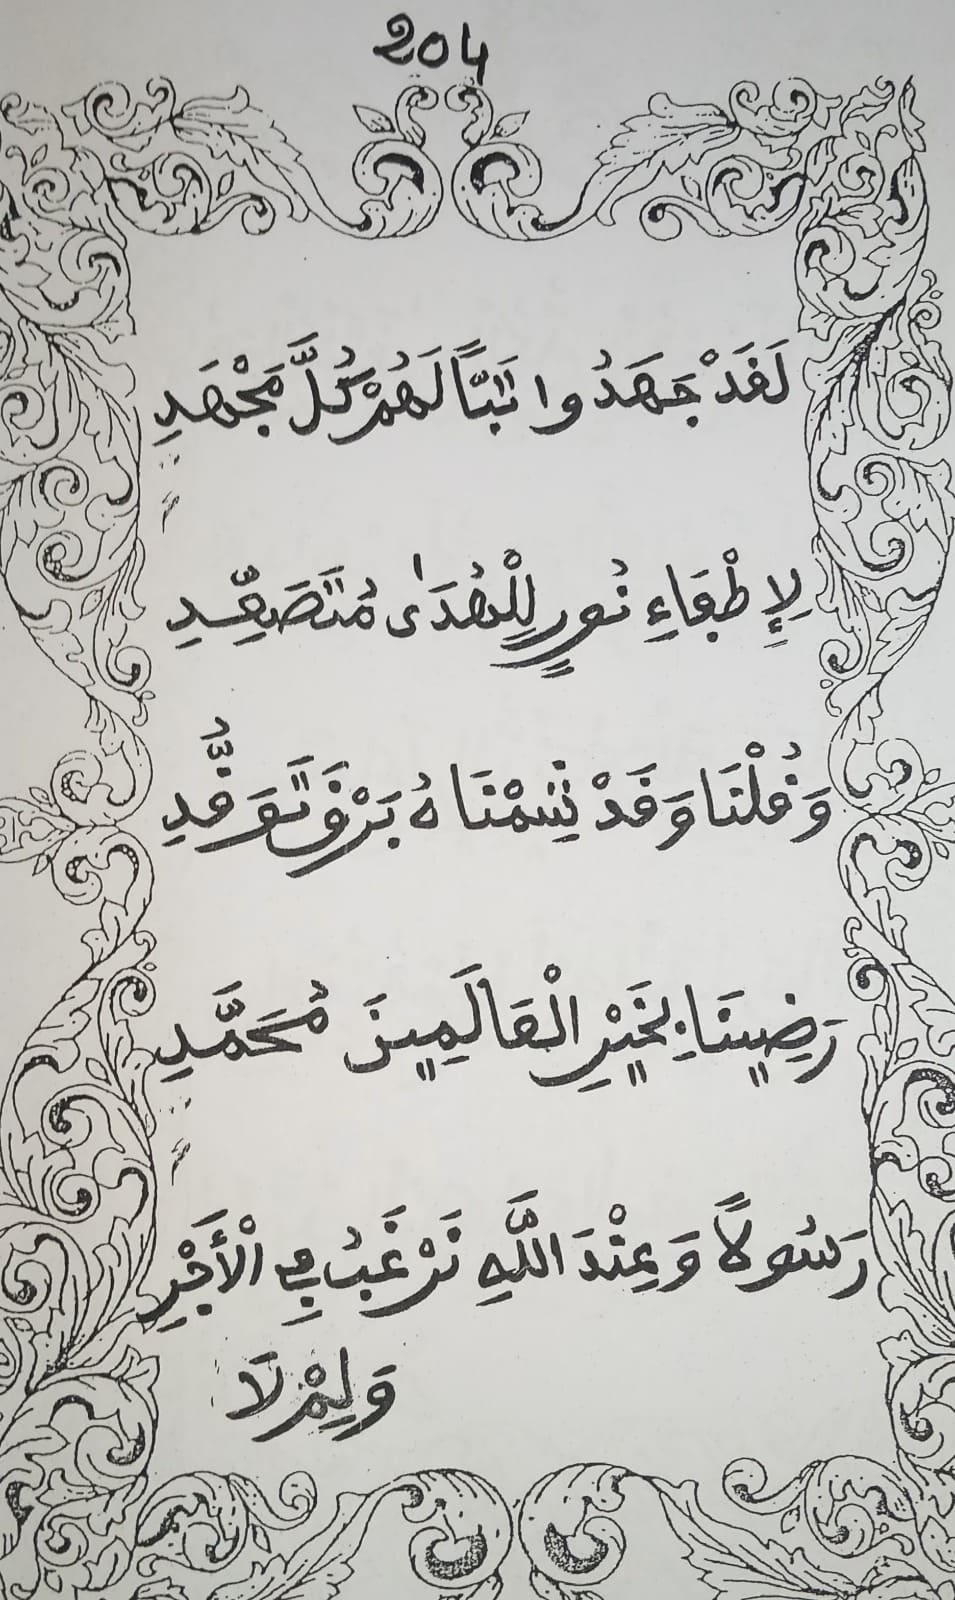 204
لَقَدْ جَهَدُوا تَبًّا لَهُمْ كُلَّ مَجْهَدِ
لِإِطْفَاءِ نُورٍ لِلْهُدَى مُتَصَعِّدِ
وَقُلْنَا وَقَدْ شِمْنَاهُ بَرْقَ تَوَقُّدِ
رَضِينَا بِخَيْرِ الْعَالَمِينَ مُحَمَّدِ
رَسُولاً وَعِنْدَ اللَّهِ نَرْغَبُ فِي الْأَجْرِ
وَلِمْ لَا